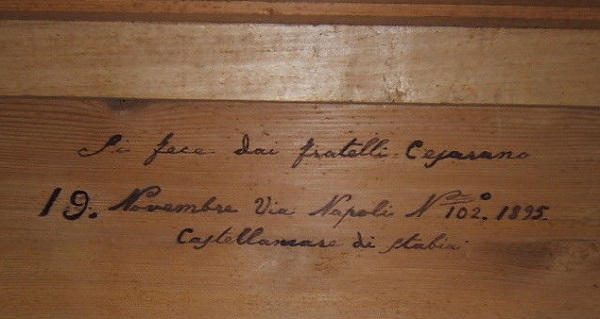 Si fece dai fratelli Cejarano
19. Novembre Via Napoli N.º 102. 1895.
Castellamare di Stabia